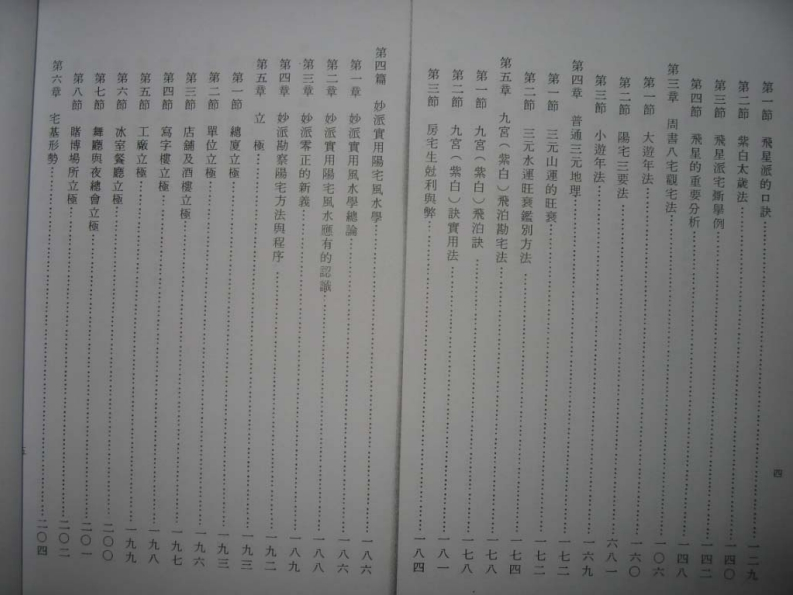 第一節 飛星派的口訣 一二九
第二節 紫白太歲法 一四〇
第三節 飛星派宅斷舉例 一四二
第四節 飛星的重要分析 一四八
第三章 周書八宅觀宅法
第一節 大遊年法 一〇六
第二節 陽宅三要法 一六〇
第三節 小遊年法 六八一
第四章 普通三元地理 一六九
第一節 三元山運的旺衰 一七二
第二節 三元水運旺衰鑑別方法 一七二
第五章 九宮(紫白)飛泊勘宅法 一七四
第一節 九宮(紫白)飛泊訣 一七八
第二節 九宮(紫白)訣實用法 一七八
第三節 房宅生尅利與弊 一八四
四
第四篇 妙派實用陽宅風水學 一八六
第一章 妙派實用風水學總論 一八六
第二章 妙派實用陽宅風水應有的認識 一八八
第三章 妙派零正的新義 一八九
第四章 妙派勘察陽宅方法與程序 一九二
第五章 立 極 一九三
第一節 總廈立極 一九三
第二節 單位立極 一九六
第三節 店舖及酒樓立極 一九七
第四節 寫字樓立極 一九八
第五節 工廠立極 一九九
第六節 冰室餐廳立極 二〇〇
第七節 舞廳與夜總會立極 二〇一
第八節 賭博場所立極 二〇二
第六章 宅基形勢 二〇四
五